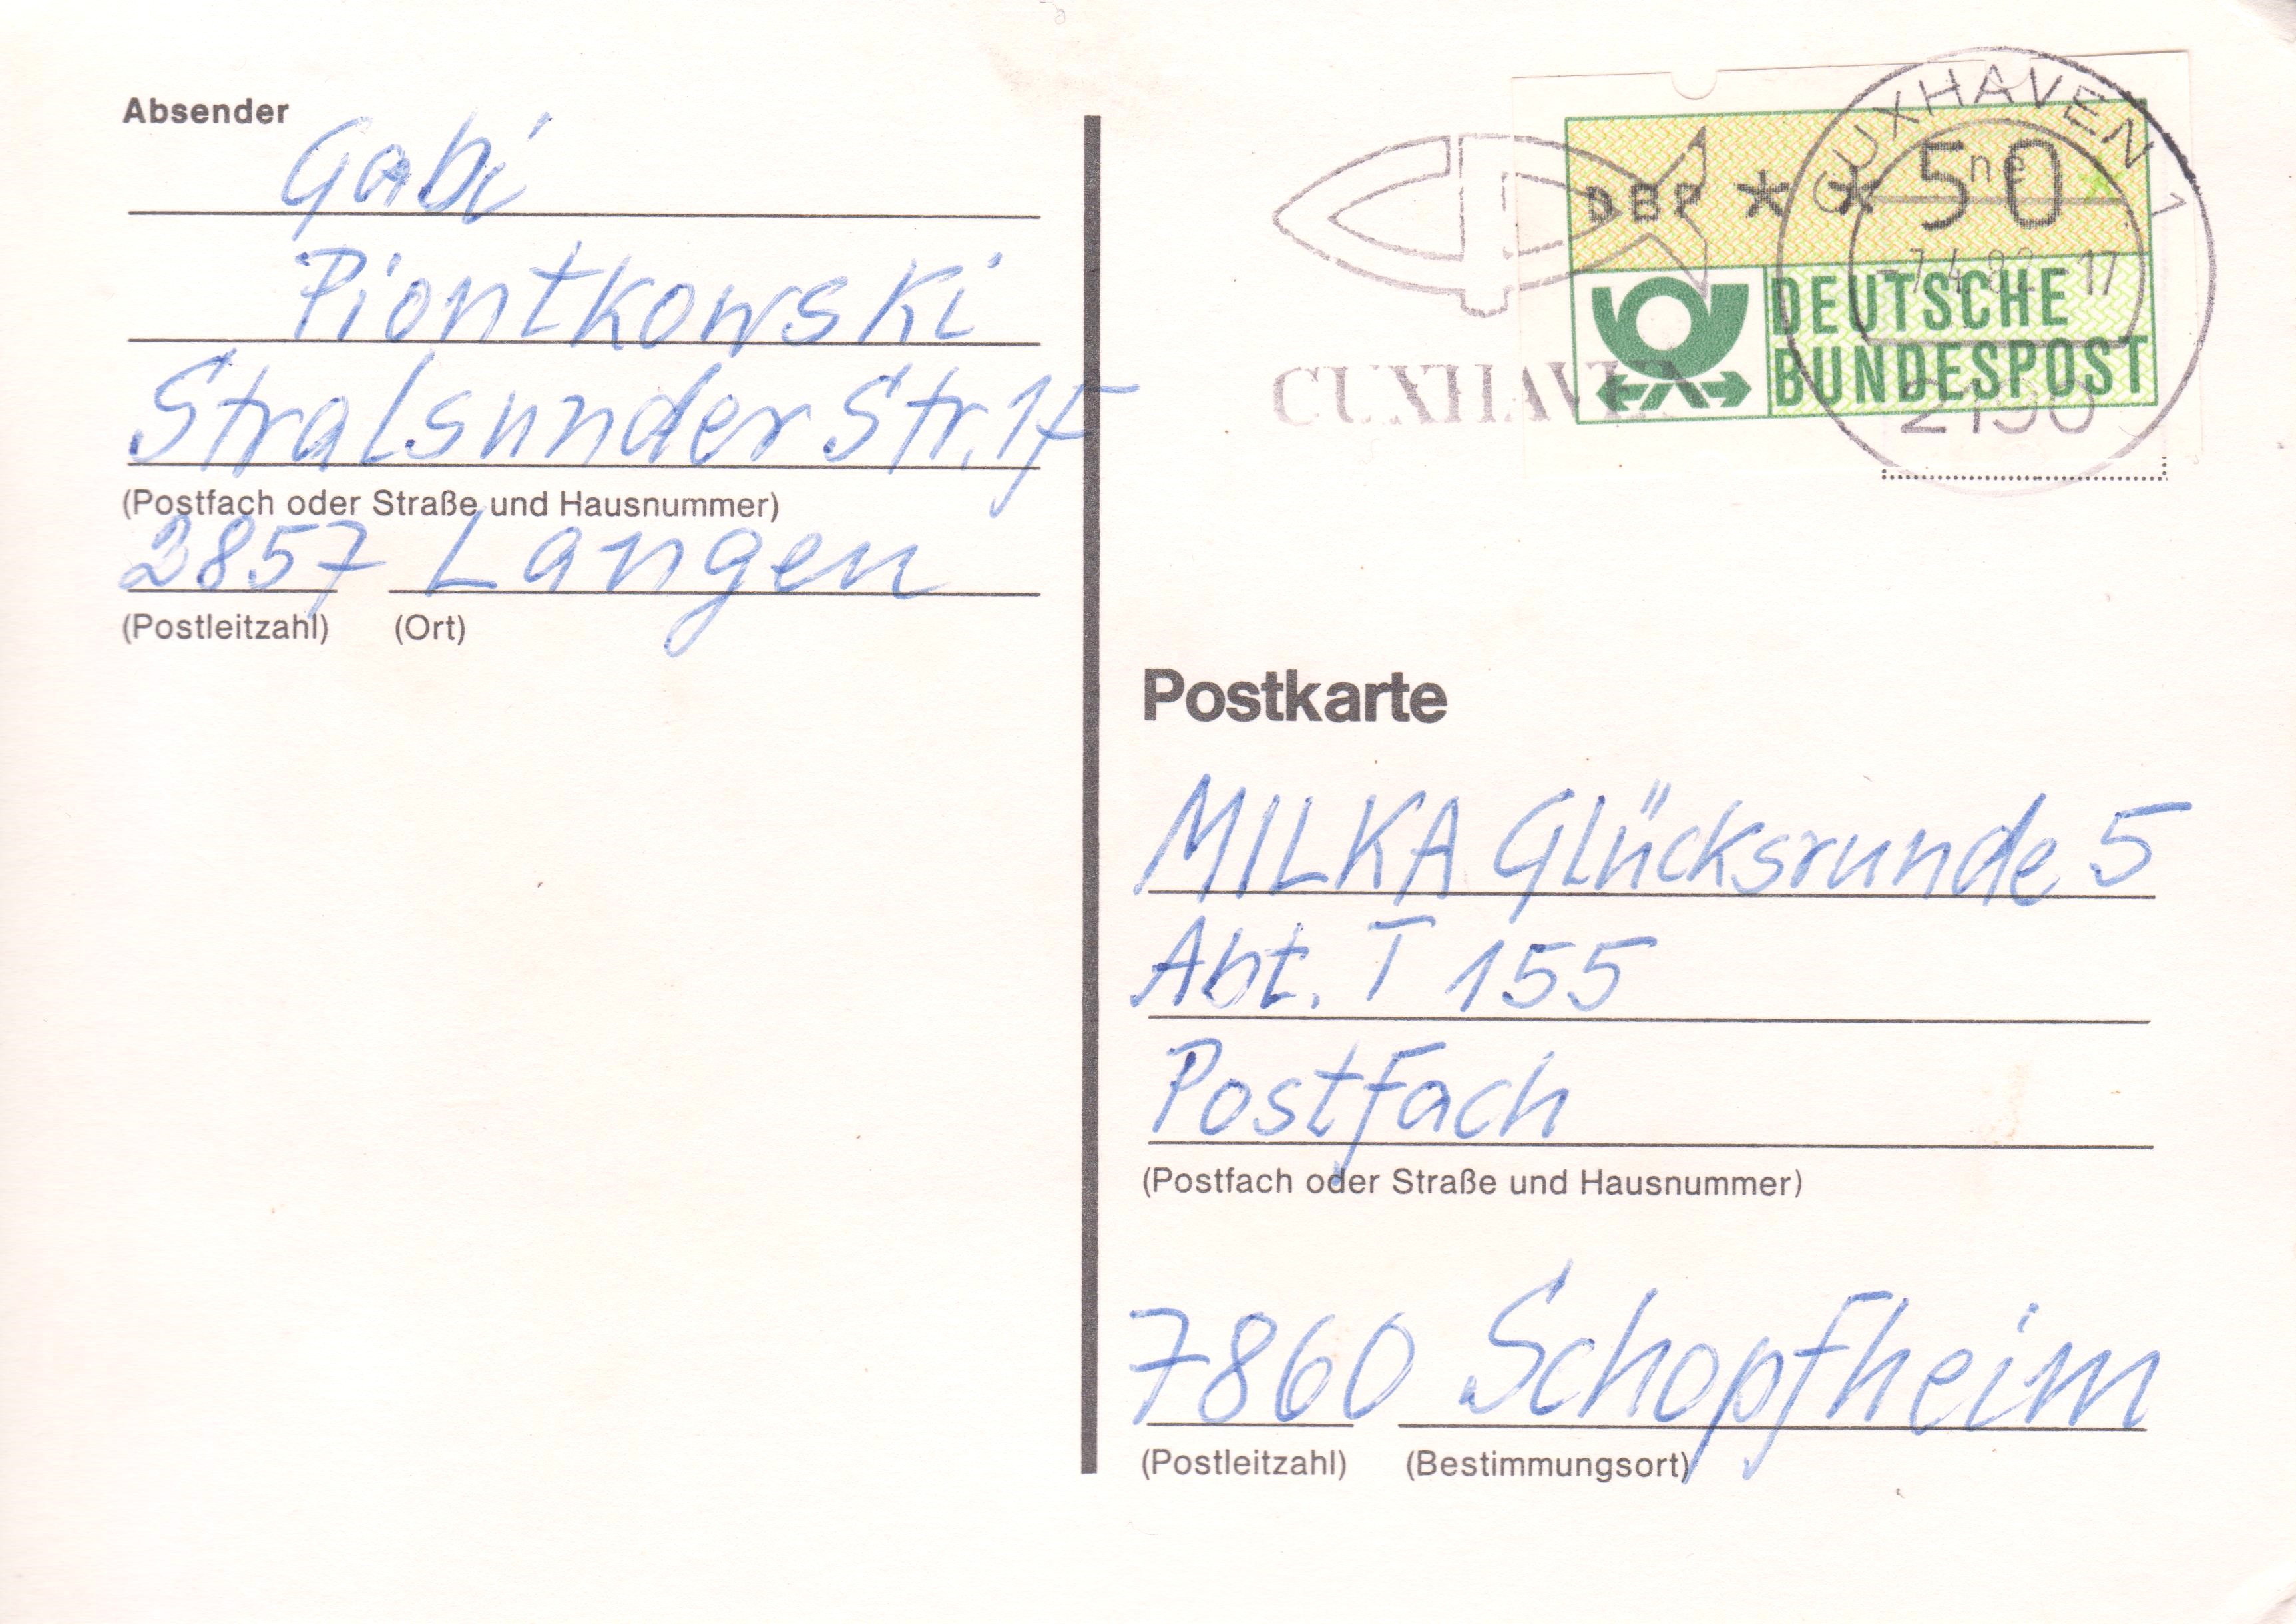 Absender
Gabi
Piontkowski
Stralsunder Str. 17
(Postfach oder Straße und Hausnummer)
2857 Langen
(Postleitzahl) (Ort)
CUXHAVEN 1
DBP ** 50
ne
-7.4.82 17
DEUTSCHE
BUNDESPOST
CUXHAVEN
2190
Postkarte
MILKA Glücksrunde 5
Abt. T 155
Postfach
(Postfach oder Straße und Hausnummer)
7860 Schopfheim
(Postleitzahl) (Bestimmungsort)